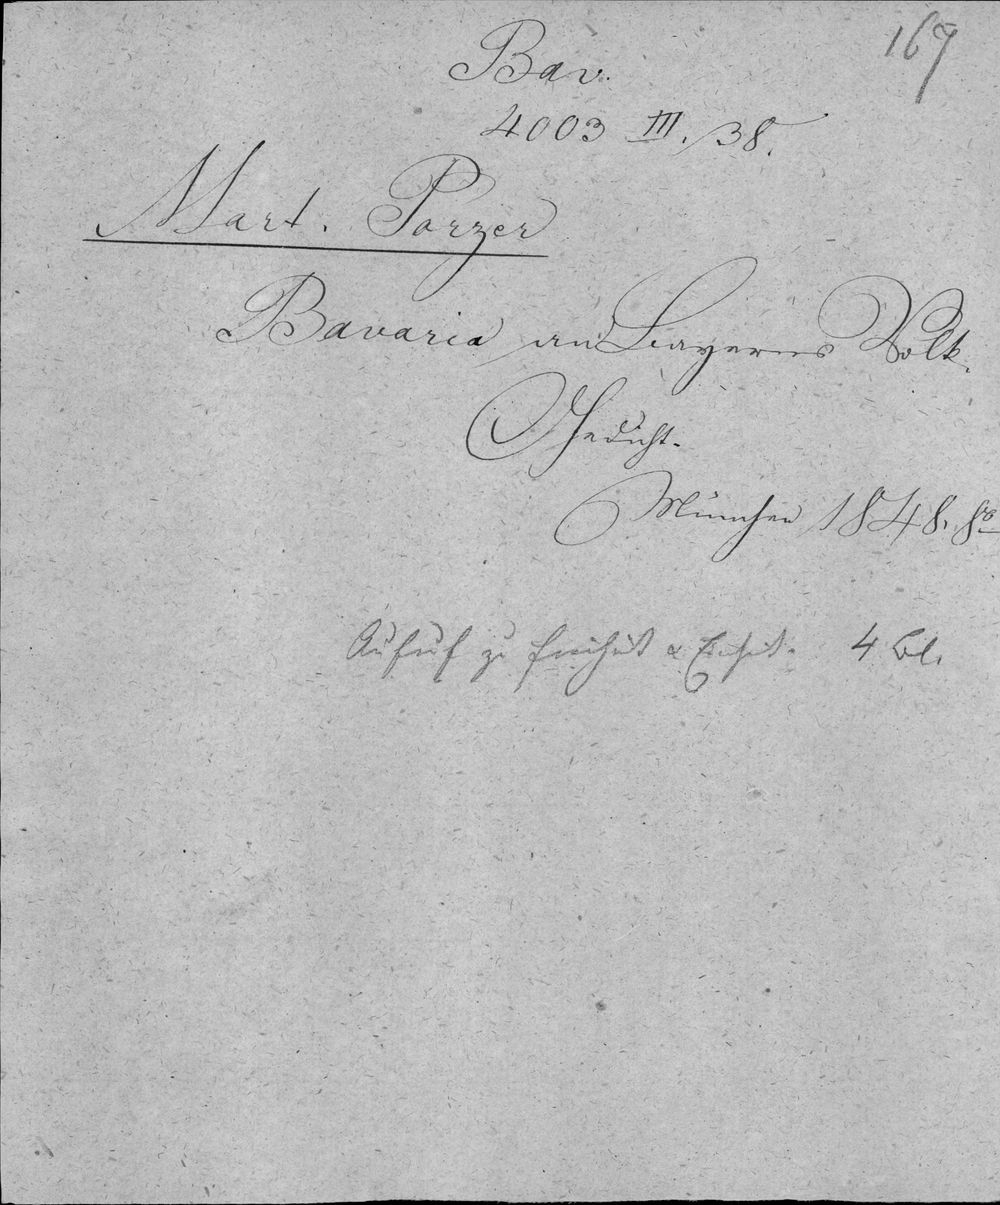 167
Bav.
4003 III. 38.
Mart. Porzer
Bavaria an Bayerns Volk.
Gedicht.
München 1848. 8º
Aufruf zu Freiheit & Einheit. 4 Bl.